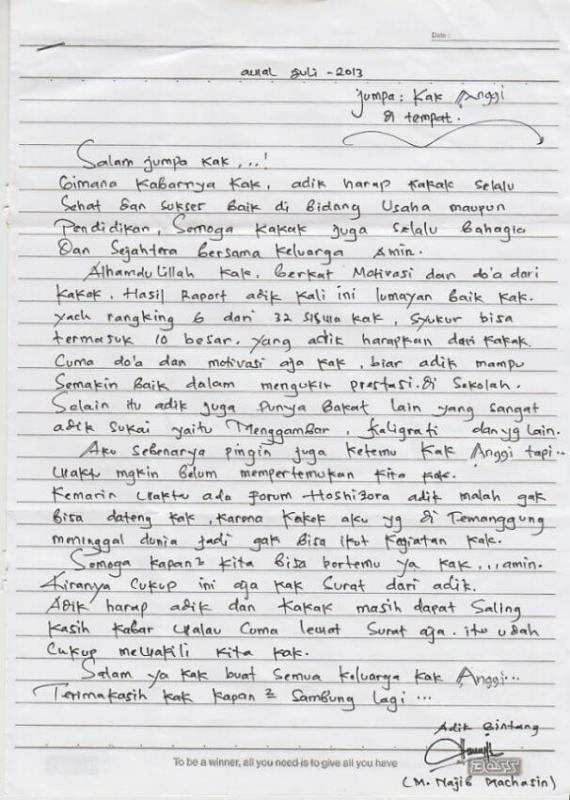 Date :
awal Juli - 2013
Jumpa : Kak Anggi
di tempat.
Salam jumpa Kak, ...!
Gimana Kabarnya Kak, adik harap Kakak selalu
Sehat dan sukses Baik di Bidang Usaha maupun
Pendidikan, Semoga Kakak juga selalu Bahagia
Dan Sejahtera Bersama Keluarga Amin.
Alhamdulillah Kak, Berkat Motivasi dan do'a dari
Kakak, Hasil Raport adik Kali ini lumayan Baik Kak.
yach rangking 6 dari 32 siswa Kak, syukur bisa
termasuk 10 besar. yang adik harapkan dari Kakak.
Cuma do'a dan motivasi aja Kak, biar adik mampu
Semakin Baik dalam mengukir prestasi di Sekolah.
Selain itu adik juga punya Bakat lain yang sangat
adik sukai yaitu Menggambar, Kaligrafi dan yg lain.
Aku sebenarya pingin juga ketemu Kak Anggi tapi..
waktu mgkin Belum mempertemukan Kita Kak.
Kemarin waktu ada forum Hoshizora adik malah gak
Bisa dateng Kak, Karena Kakek aku yg di Temanggung
meninggal dunia jadi gak Bisa ikut Kegiatan Kak.
Semoga kapan2 Kita Bisa bertemu ya Kak,...amin.
Kiranya Cukup ini aja Kak Surat dari adik.
Adik harap adik dan Kakak masih dapat Saling
Kasih Kabar walau Cuma lewat Surat aja. itu udah
Cukup mewakili Kita Kak.
Salam ya Kak buat Semua Keluarga Kak Anggi...
Terimakasih Kak Kapan2 Sambung lagi ...
Adik Bintang
To be a winner, all you need is to give all you have
Boss
(M. Najib Machasin)